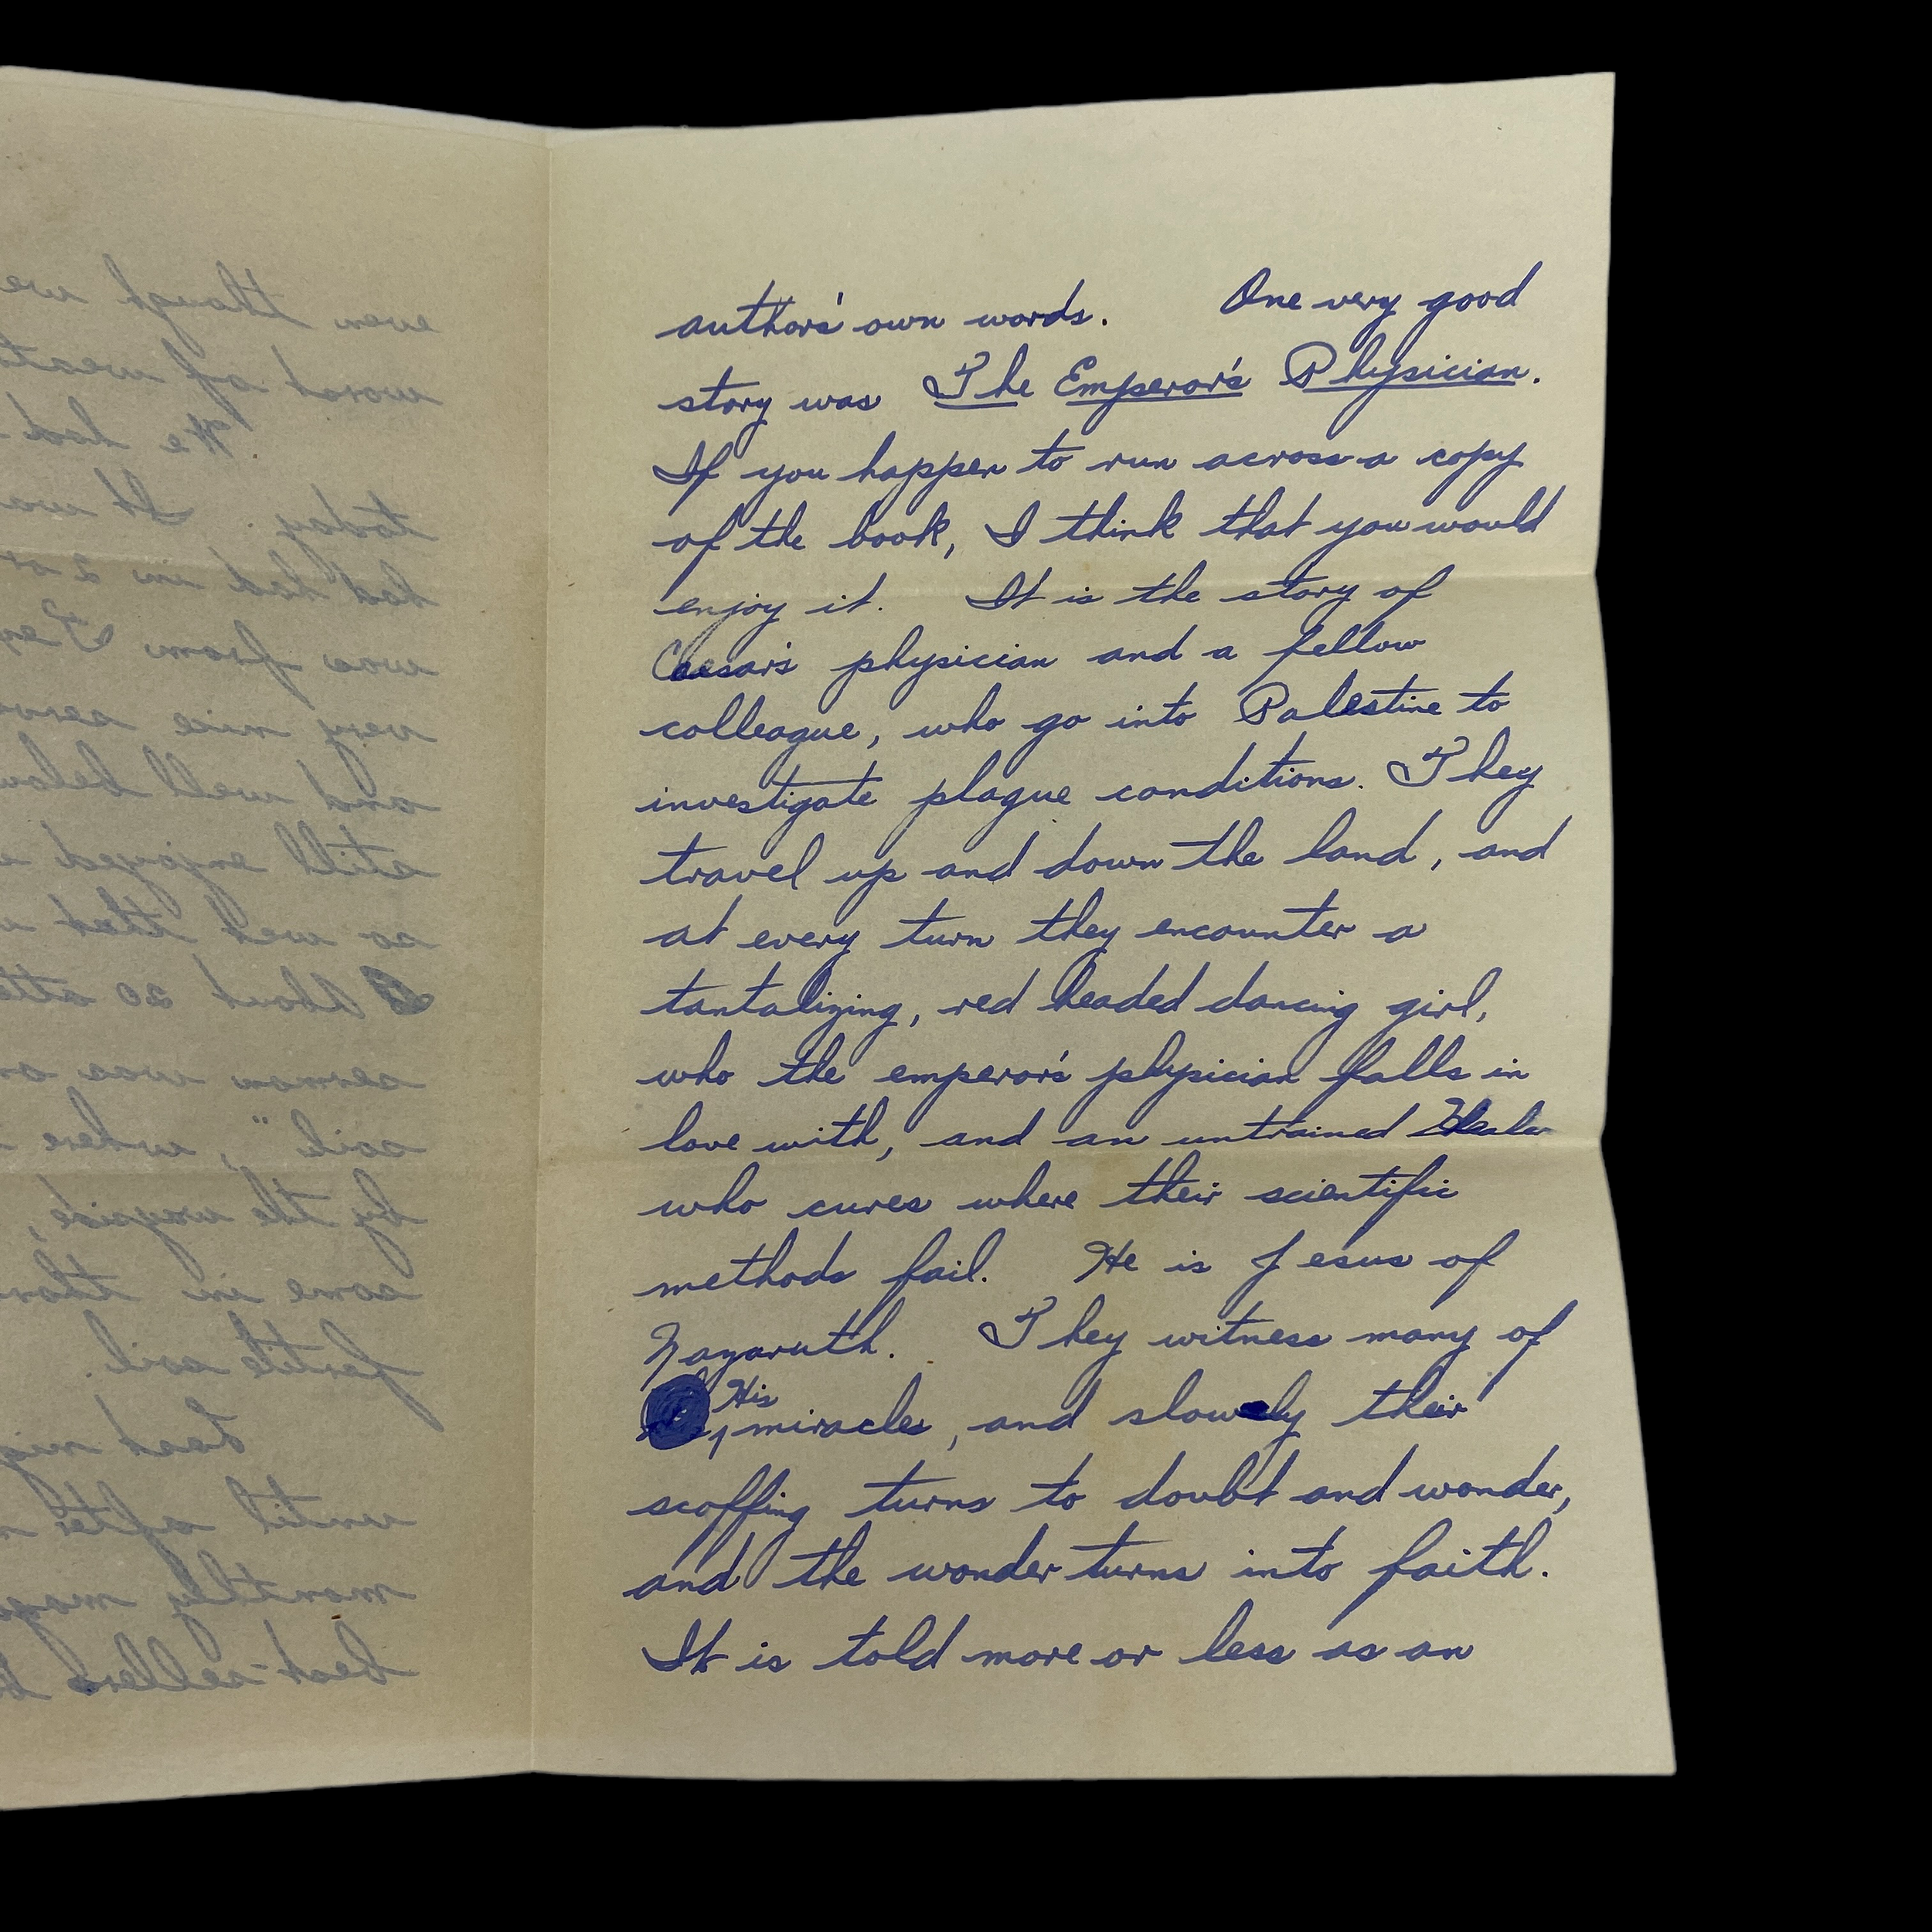 author's own words. One very good
story was The Emperor's Physician.
If you happen to run across a copy
of the book, I think that you would
enjoy it. It is the story of
Caesar's physician and a fellow
colleague, who go into Palestine to
investigate plague conditions. They
travel up and down the land, and
at every turn they encounter a
tantalizing, red headed dancing girl,
who the emperor's physician falls in
love with, and an untrained Healer
who cures where their scientific
methods fail. He is Jesus of
Nazaruth. They witness many of
His miracles, and slowly their
scoffing turns to doubt and wonder,
and the wonder turns into faith.
It is told more or less as an